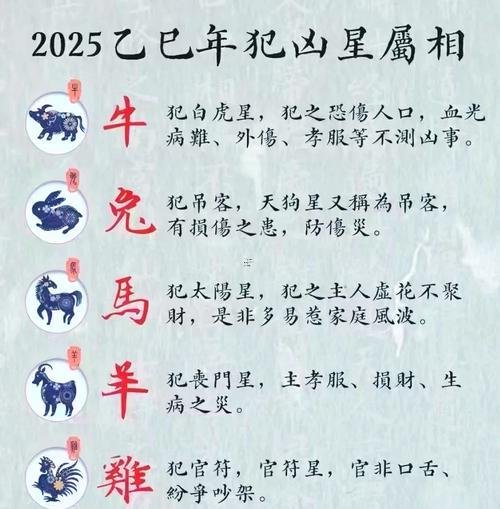 2025乙巳年犯凶星屬相
牛
犯白虎星，犯之恐傷人口，血光
病難、外傷、孝服等不測凶事。
兔
犯吊客，天狗星又稱為吊客，
有損傷之患，防傷災。
馬
犯太陽星，犯之主人虛花不聚
財，是非多易惹家庭風波。
羊
羊
犯喪門星，主孝服、損財、生
病之災。
雞
犯官符，官符星，官非口舌、
紛爭吵架。